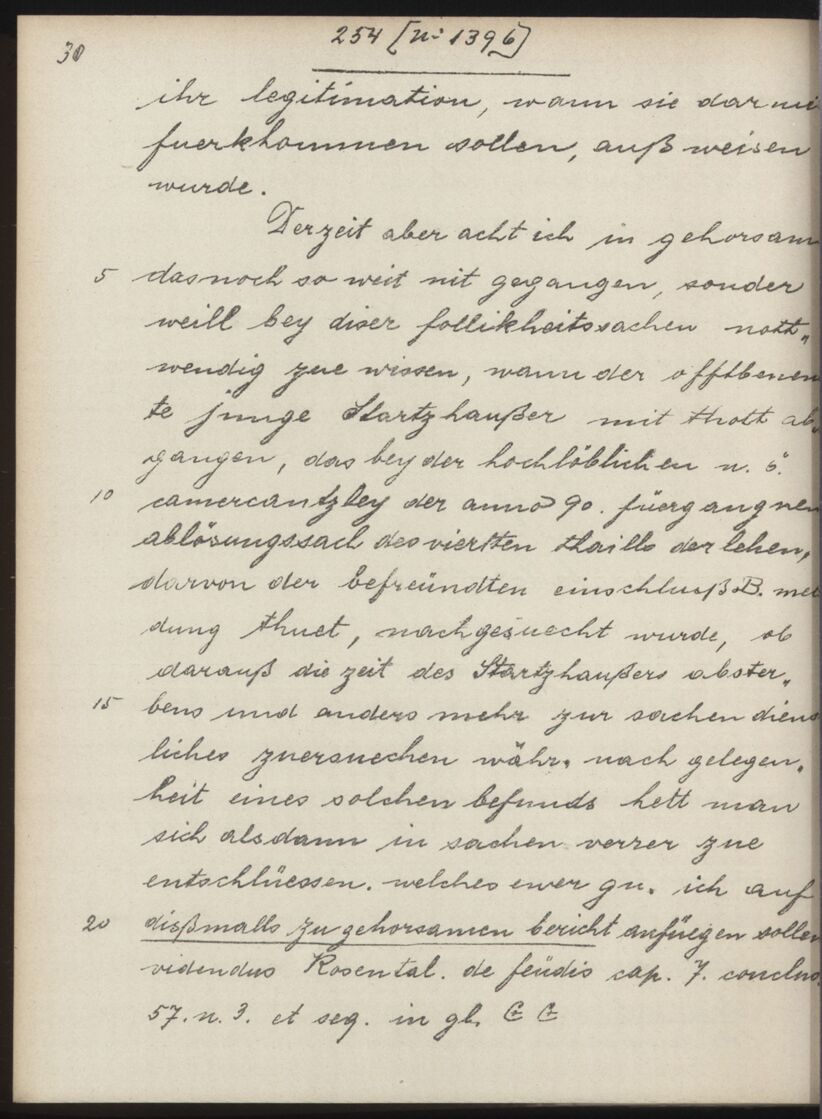 30
254 [Nr 1396]
ihr legitimation, wann sie dar mi
fuerkhommen sollen, außweisen
wurde.
Derzeit aber acht ich in gehorsam
5 das noch so weit nit gegangen, sonder
weill bey diser follikheitssachen nott„
wendig zue wissen, wann der offtbenen
te junge Startzhaußer mit thott ab„
gangen, das bey der hochlöblichen n. ö.
10 camercantzley der anno 90. füergangnen
ablösungssach des viertten thaills der lehen,
darvon der befreündten einschluß B. mel
dung thuet, nachgesuecht wurde, ob
darauß die zeit des Startzhaußers abster„
15 bens und anders mehr zur sachen diens
liches zuersuechen währ. nach gelegen„
heit eines solchen befunds hett man
sich alsdann in sachen verrer zue
entschlüessen. welches ewer gn. ich auf
20 dißmalls zu gehorsamen bericht anfüegen sollen
videndus Rosental. de feudis cap. 7. conclus.
57. n. 3. et seq. in gl.